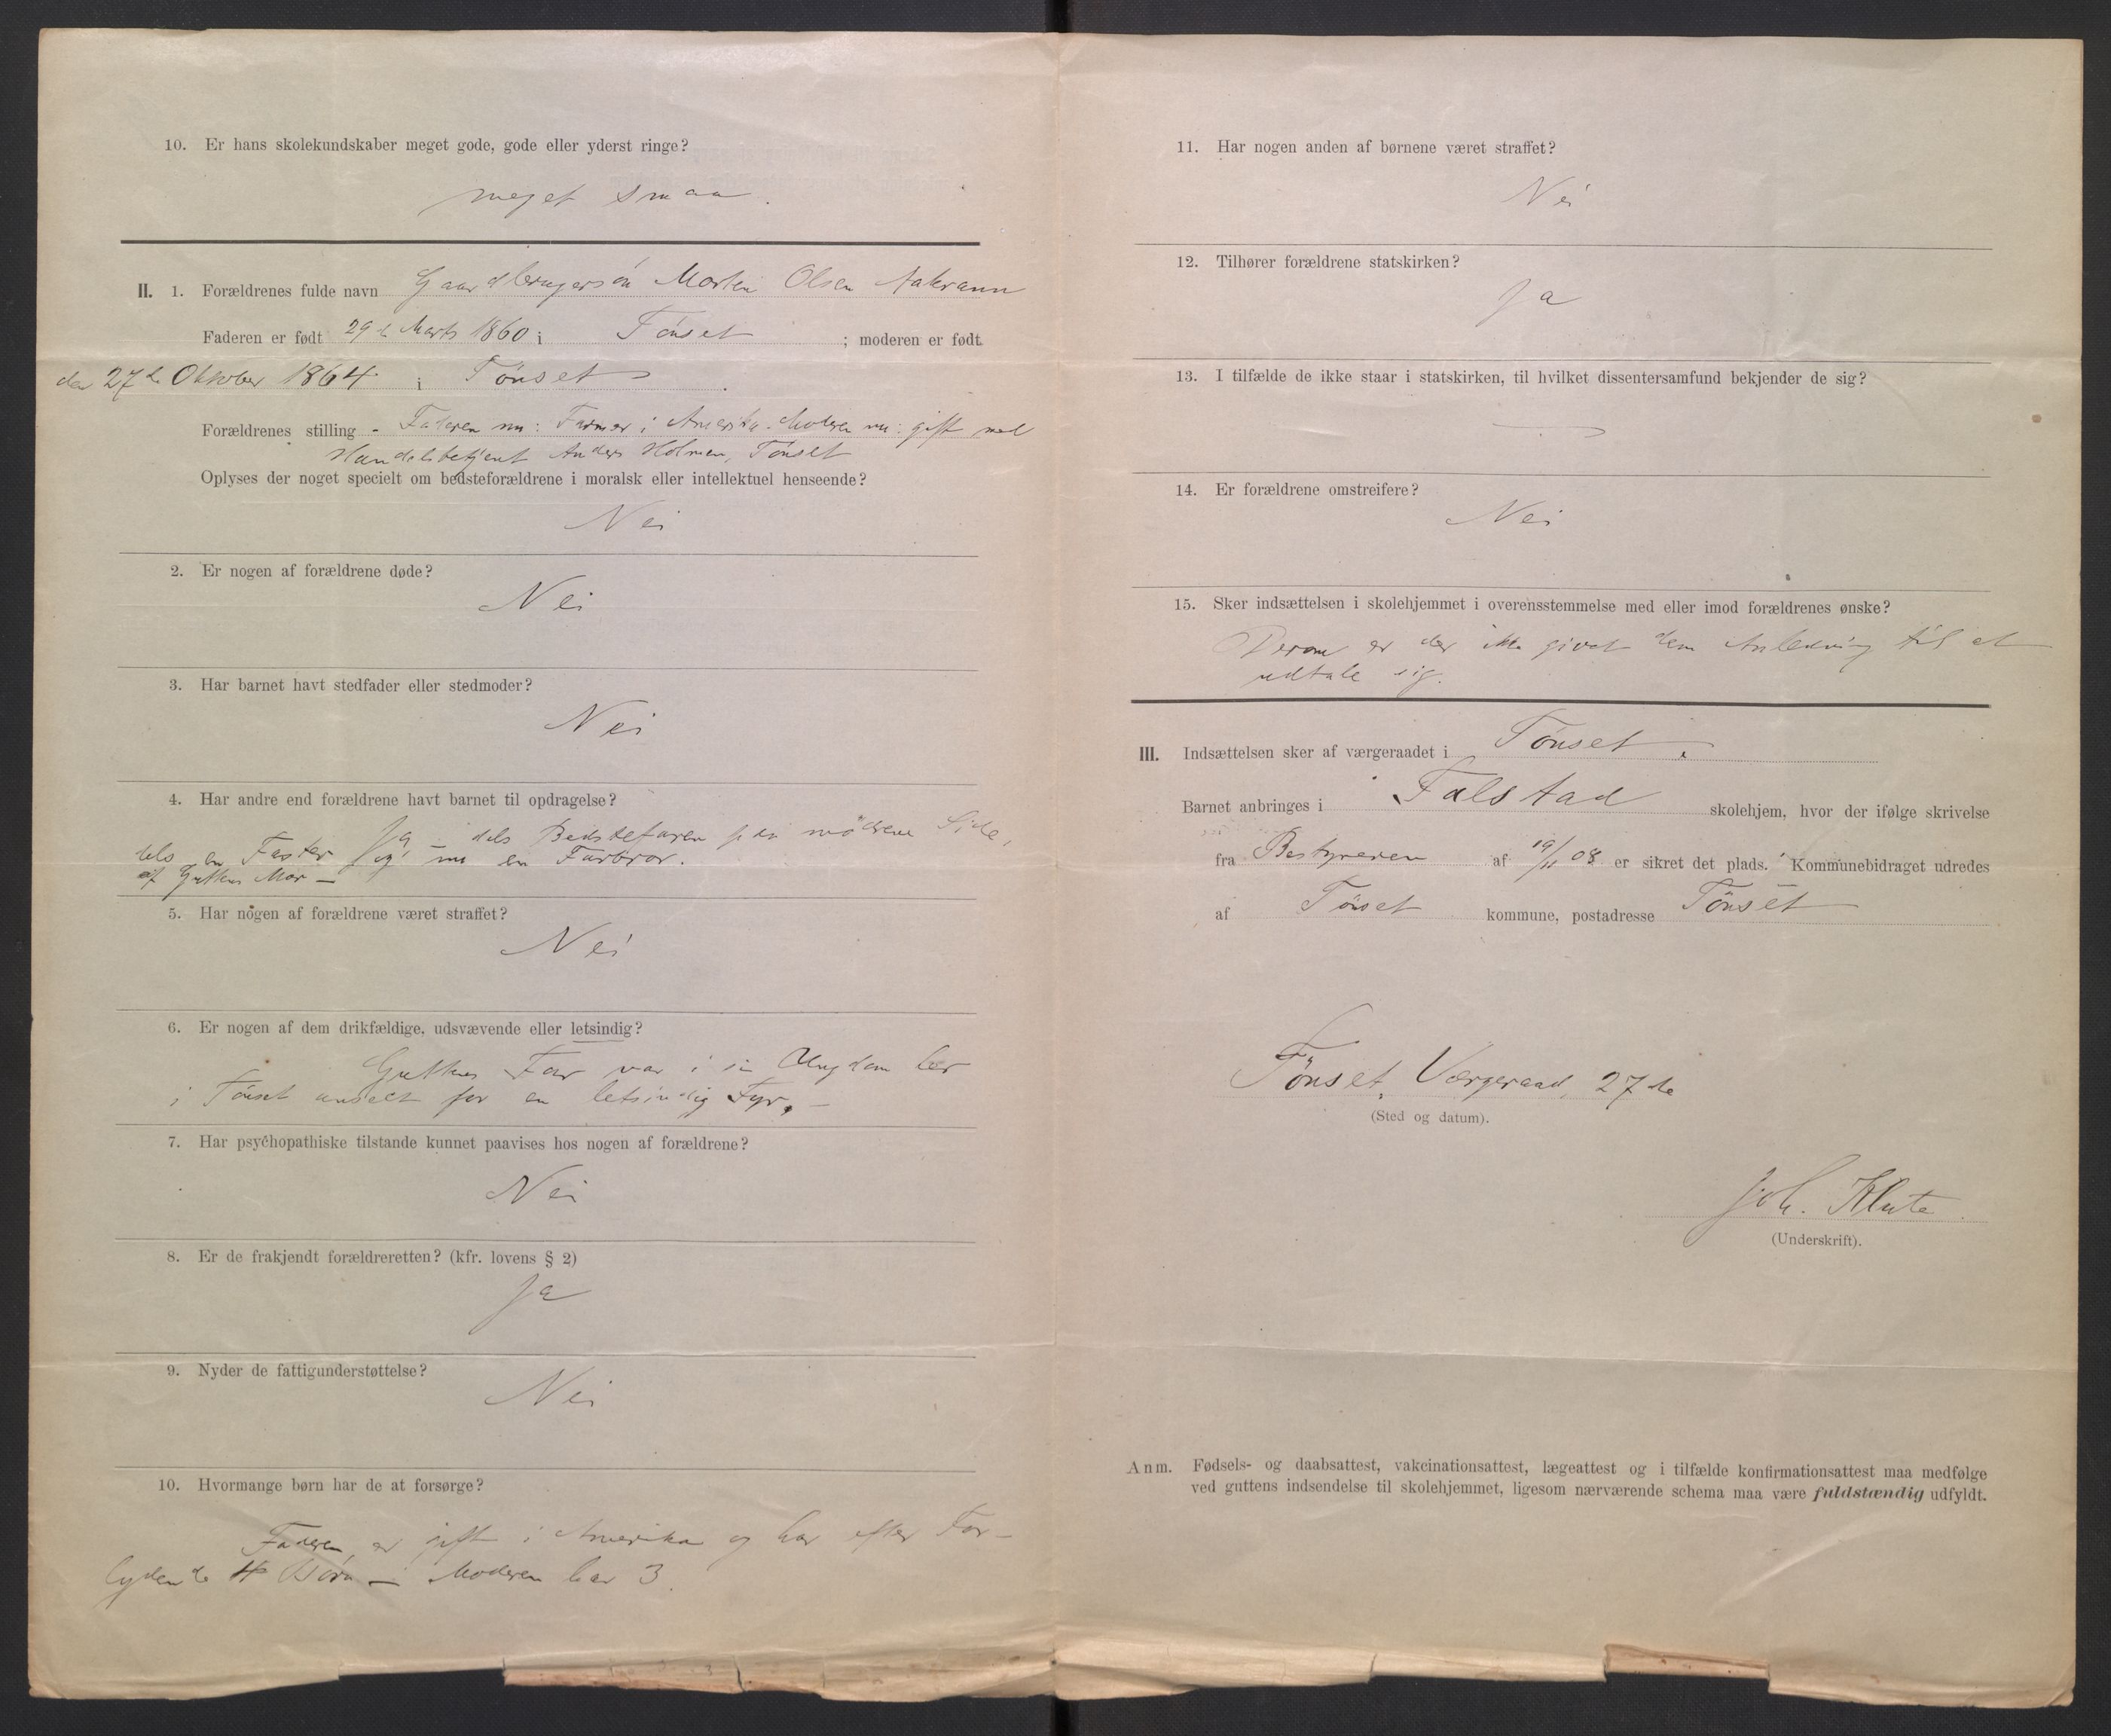 10. Er hans skolekundskaber meget gode, gode eller yderst ringe?
meget smaa.
II. 1. Forældrenes fulde navn Gaardbrugersön Morten Olsen Aakrann
Faderen er født 29de Marts 1860 i Tönset ; moderen er født
den 27de Oktober 1864 i Tönset .
Forældrenes stilling - Faderen nu: Farmer i Amerika. Moderen nu: gift med
Handelsbetjent Anders Holmen, Tönset
Oplyses der noget specielt om bedsteforældrene i moralsk eller intellektuel henseende?
Nei
2. Er nogen af forældrene døde?
Nei
3. Har barnet havt stedfader eller stedmoder?
Nei
4. Har andre end forældrene havt barnet til opdragelse?
Ja, dels Bedstefaren paa mödrene Side,
dels en Faster og nu en Farbror.
af Guttens Mor —
5. Har nogen af forældrene været straffet?
Nei
6. Er nogen af dem drikfældige, udsvævende eller letsindig?
Guttens Far var i sin Ungdom her
i Tönset anseet for en letsindig Fyr. —
7. Har psychopathiske tilstande kunnet paavises hos nogen af forældrene?
Nei
8. Er de frakjendt forældreretten? (kfr. lovens § 2)
Ja
9. Nyder de fattigunderstøttelse?
Nei
10. Hvormange børn har de at forsørge?
Faderen er gift i Amerika og har efter For-
lydende 4 Börn — Moderen har 3.
11. Har nogen anden af børnene været straffet?
Nei
12. Tilhører forældrene statskirken?
Ja
13. I tilfælde de ikke staar i statskirken, til hvilket dissentersamfund bekjender de sig?
—
14. Er forældrene omstreifere?
Nei
15. Sker indsættelsen i skolehjemmet i overensstemmelse med eller imod forældrenes ønske?
Derom er der ikke givet dem Anledning til at
udtale sig.
III. Indsættelsen sker af værgeraadet i Tönset.
Barnet anbringes i Falstad skolehjem, hvor der ifølge skrivelse
fra Bestyreren af 19/11 08 er sikret det plads. Kommunebidraget udredes
af Tönset kommune, postadresse Tönset
Tönset, Værgeraad, 27de
(Sted og datum).
Joh. Klute
(Underskrift).
Anm. Fødsels- og daabsattest, vakcinationsattest, lægeattest og i tilfælde konfirmationsattest maa medfølge
ved guttens indsendelse til skolehjemmet, ligesom nærværende schema maa være fuldstændig udfyldt.